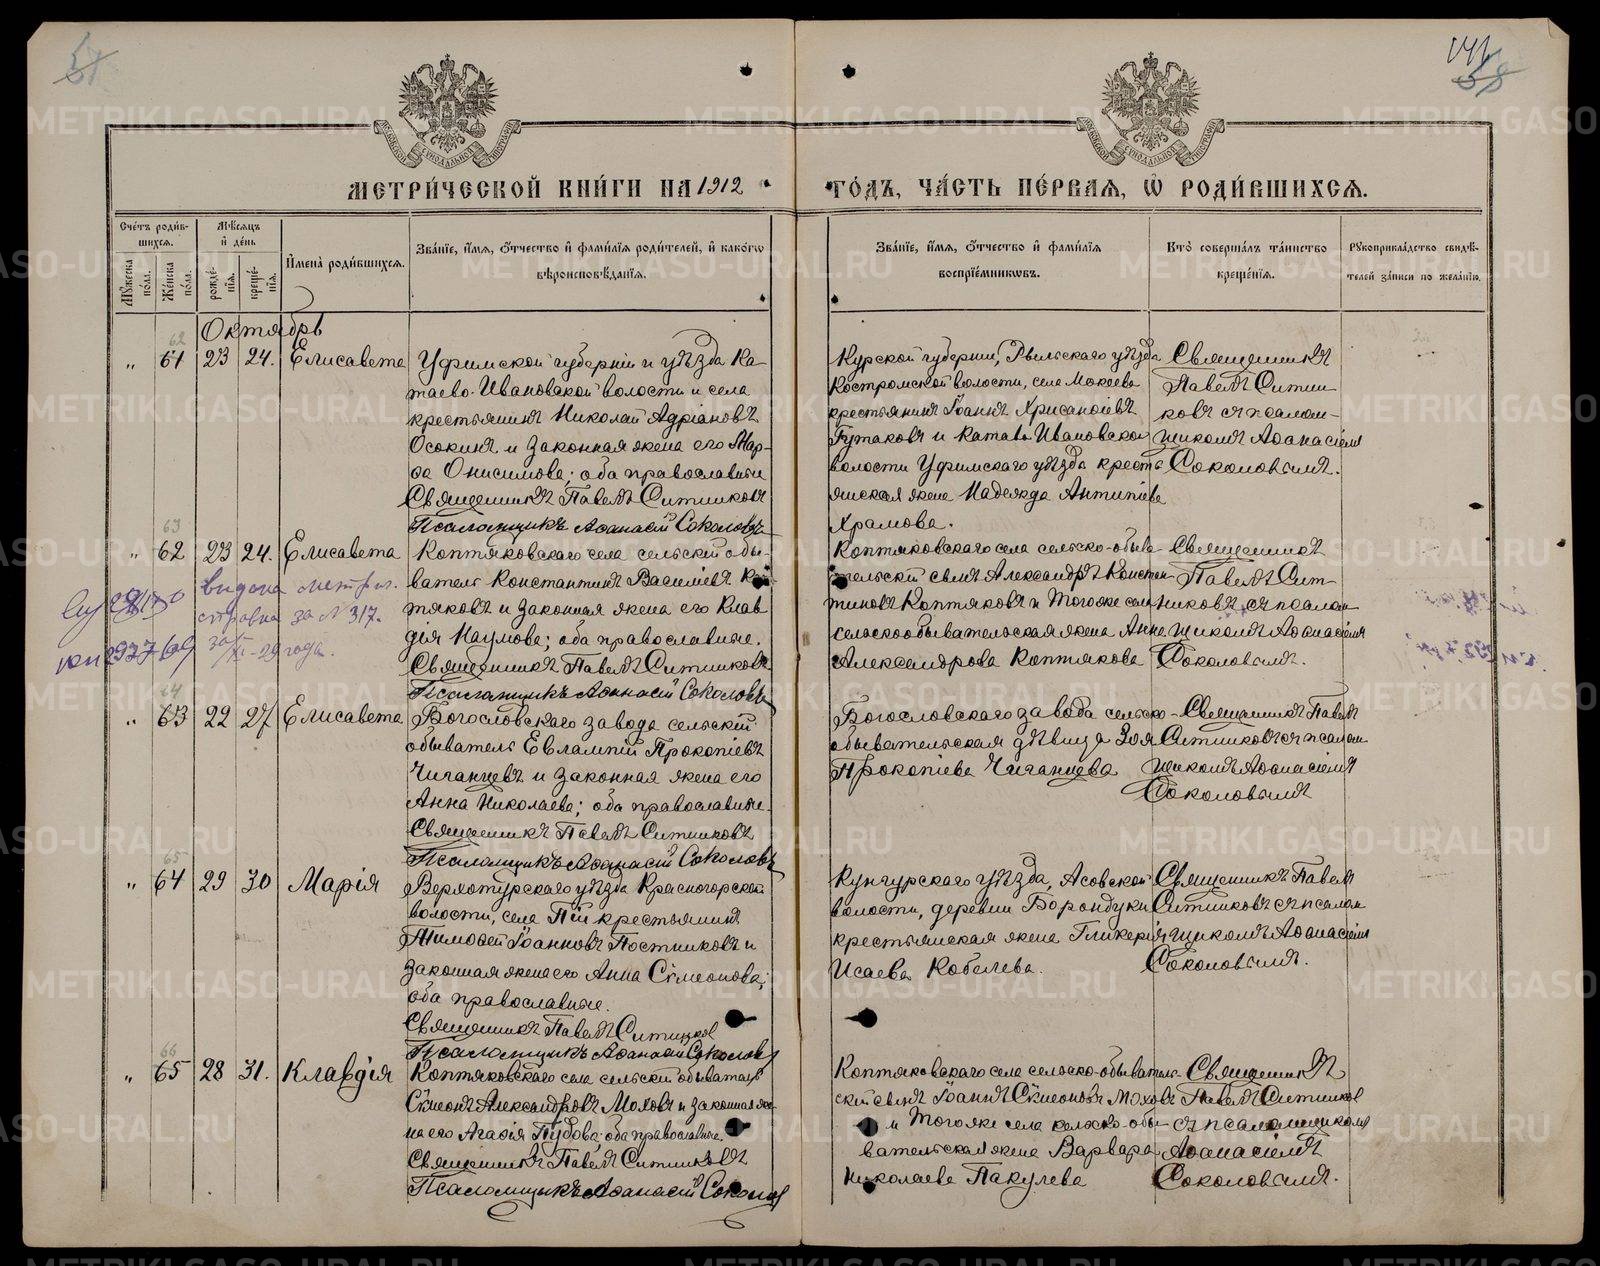 57
141
58
МЕТРИ́ЧЕСКОЙ КНИ́ГИ НА 1912
ГО́ДЪ, ЧА́СТЬ ПЕ́РВАЯ, Ѽ РОДИ́ВШИХСЯ.
Сче́тъ роди́в-
шихся.
Му́жеска
по́ла.
Же́нска
по́ла.
Мѣ́сяцъ
и҆ де́нь
рожде́-
нїя.
креще́-
нїя.
И҆мена̀ роди́вшихся.
Зва́нїе, и҆́мя, ѻ҆́тчество и҆ фами́лїя роди́телей, и҆ како́гѡ
вѣроисповѣ́данїя.
Зва́нїе, и҆́мя, ѻ҆́тчество и҆ фами́лїя
воспрїе́мникѡвъ.
Кто̀ соверша́лъ та́инство
креще́нїя.
Рꙋкоприкла́дство свидѣ́-
телей за́писи по жела́нїю.
Октябрь
62
" 61 23 24. Елисавета
Уфимской губерніи и уѣзда Ка-
таево-Ивановской волости и села
крестьянинъ Николай Адріановъ
Осокинъ и законная жена его Мар-
ѳа Онисимова; оба православные
Священникъ Павелъ Ситниковъ
Псаломщикъ Аѳанасій Соколовъ
Курской губерніи, Рыльскаго уѣзда
Костромской волости, села Мокеева
крестьянинъ Іоаннъ Хрисанѳіевъ
Гутаковъ и Катаво Ивановской
волости Уфимскаго уѣзда кресть
янская жена Надежда Антипіева
Храмова.
Священникъ
Павелъ Ситни
ковъ съ псалом-
щикомъ Аѳанасіемъ
Соколовымъ.
63
" 62 23 24. Елисавета
Коптяковскаго села сельскій обы-
ватель Константинъ Василіевъ Коп-
тяковъ и законная жена его Клав
дія Наумова; оба православные.
Священникъ Павелъ Ситниковъ
Псаломщикъ Аѳанасій Соколовъ
выдана метрич.
справка за № 317.
29 года.
Коптяковскаго села сельско-обыва
тельскій сынъ Александръ Констан
тиновъ Коптяковъ и того же села
сельскообывательская жена Анна
Александрова Коптякова
Священникъ
Павелъ Сит-
никовъ съ псалом
щикомъ Аѳанасіемъ
Соколовымъ.
64
" 63 22 27 Елисавета
Богословскаго завода сельскій
обыватель Евлампій Прокопіевъ
Чиганцевъ и законная жена его
Анна Николаева; оба православные.
Священникъ Павелъ Ситниковъ
Псаломщикъ Аѳанасій Соколовъ
Богословскаго завода сельско-
обывательская дѣвица Зоя
Прокопіева Чиганцева
Священникъ Павелъ
Ситниковъ съ псалом
щикомъ Аѳанасіемъ
Соколовымъ
65
" 64 29 30 Марія
Верхотурскаго уѣзда Красногорской
волости, села Піи крестьянинъ
Тимоѳей Іоанновъ Постниковъ и
законная жена его Анна Сѵмеонова;
оба православные.
Священникъ Павелъ Ситников
Псаломщикъ Аѳанасій Соколовъ
Кунгурскаго уѣзда, Асовской
волости, деревни Борондуки
крестьянская жена Гликерія
Исаева Кобелева.
Священникъ Павелъ
Ситниковъ съ псалом
щикомъ Аѳанасіемъ
Соколовымъ.
66
" 65 28 31. Клавдія
Коптяковскаго села сельскій обыватель
Сѵмеонъ Александровъ Моховъ и законная же-
на его Агаѳія Пудова; оба православные.
Священникъ Павелъ Ситниковъ
Псаломщикъ Аѳанасій Соколов
Коптяковскаго села сельско-обыватель-
скій сынъ Іоаннъ Сѵмеоновъ Моховъ
и того же села сельско-обы-
вательская жена Варвара
Николаева Пакулева
Священникъ
Павелъ Ситников
съ псаломщикомъ
Аѳанасіемъ
Соколовымъ.
METRIKI.GASO-URAL.RU